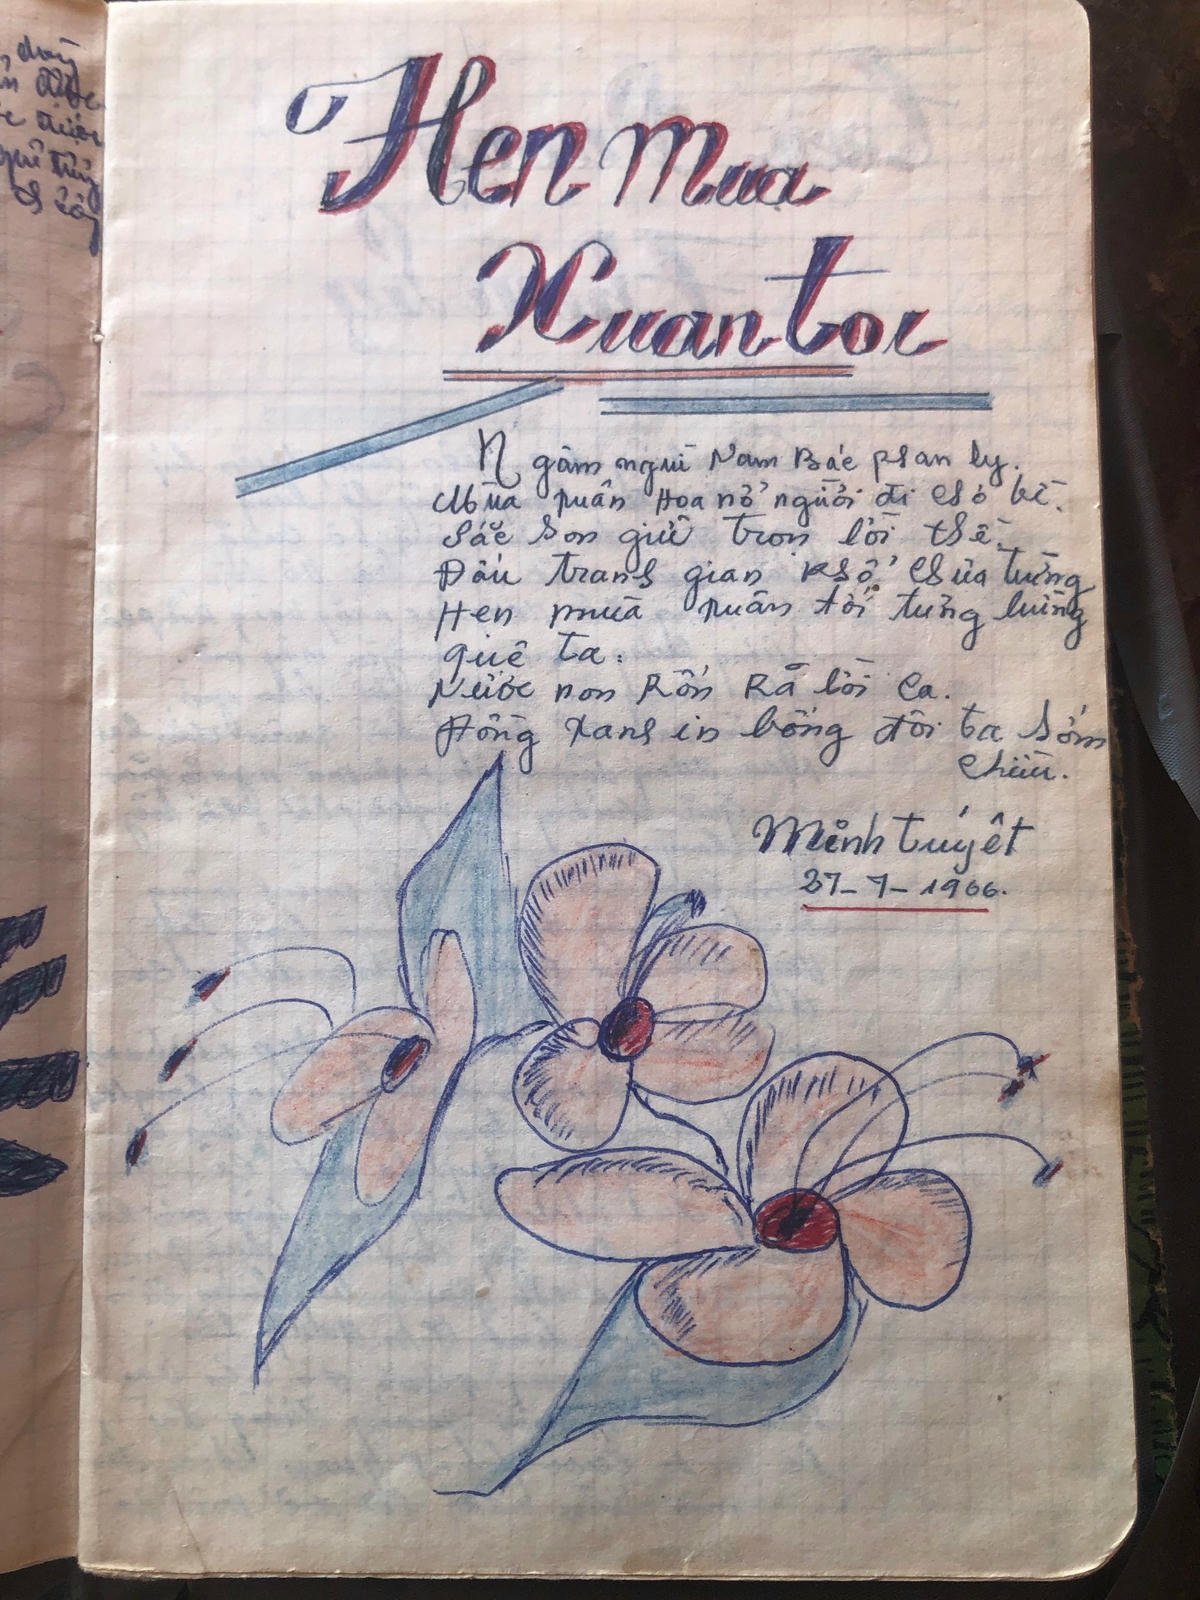 , đang
quê từng
Hẹn Mua
Xuan toi
Ngâm ngùi Nam Bắc phan ly.
Mùa xuân Hoa nở người đi chớ về.
Sắc Son giữ tron lời thề.
Đấu tranh gian khổ chưa từng
Hen mùa xuân tới tưng bừng
quê ta.
Nước non Rộn Rã lời ca.
Đồng Xanh in bóng đôi ta sớm
chiều.
Minh Tuyết
27-7-1966.